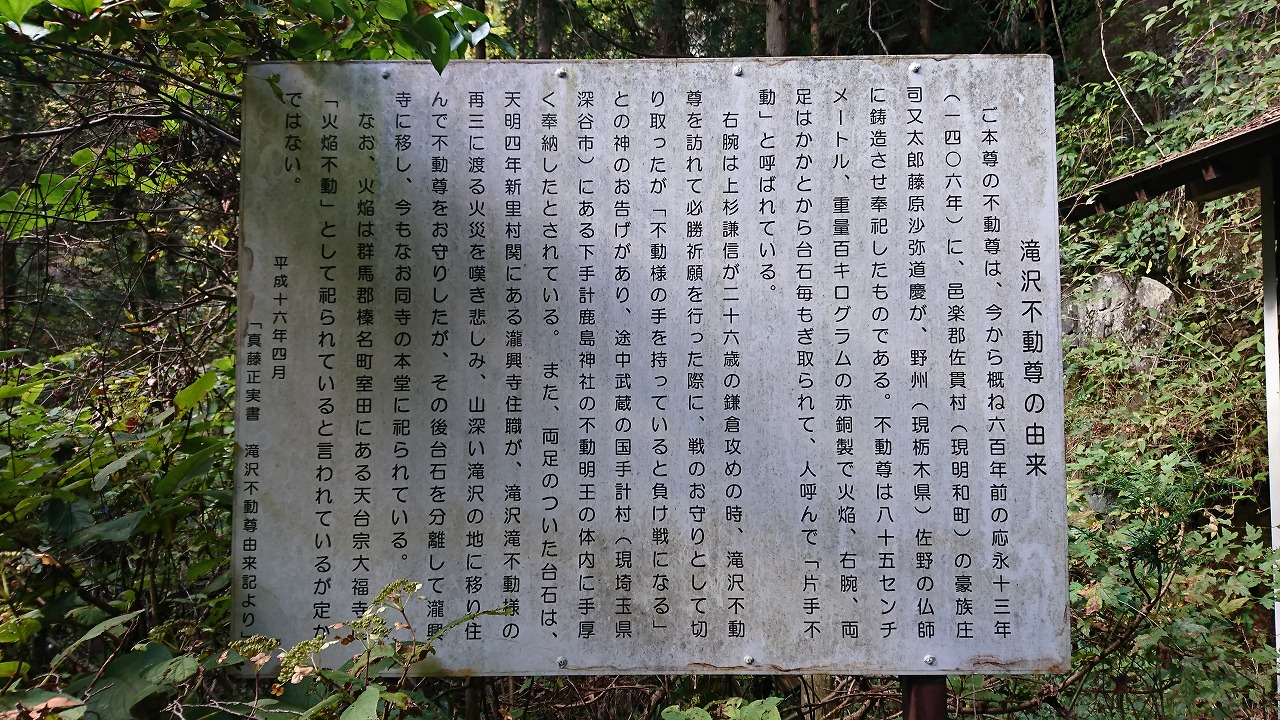 滝沢不動尊の由来
ご本尊の不動尊は、今から概ね六百年前の応永十三年
(一四〇六年)に、邑楽郡佐貫村(現明和町)の豪族庄
司又太郎藤原沙弥道慶が、野州(現栃木県)佐野の仏師
に鋳造させ奉祀したものである。不動尊は八十五センチ
メートル、重量百キログラムの赤銅製で火焔、右腕、両
足はかかとから台石毎もぎ取られて、人呼んで「片手不
動」と呼ばれている。
右腕は上杉謙信が二十六歳の鎌倉攻めの時、滝沢不動
尊を訪れて必勝祈願を行った際に、戦のお守りとして切
り取ったが「不動様の手を持っていると負け戦になる」
との神のお告げがあり、途中武蔵の国手計村(現埼玉県
深谷市)にある下手計鹿島神社の不動明王の体内に手厚
く奉納したとされている。また、両足のついた台石は、
天明四年新里村関にある瀧興寺住職が、滝沢滝不動様の
再三に渡る火災を嘆き悲しみ、山深い滝沢の地に移り住
んで不動尊をお守りしたが、その後台石を分離して瀧興
寺に移し、今もなお同寺の本堂に祀られている。
なお、火焔は群馬郡榛名町室田にある天台宗大福寺
「火焔不動」として祀られていると言われているが定か
ではない。
平成十六年四月
「真藤正実書 滝沢不動尊由来記より」